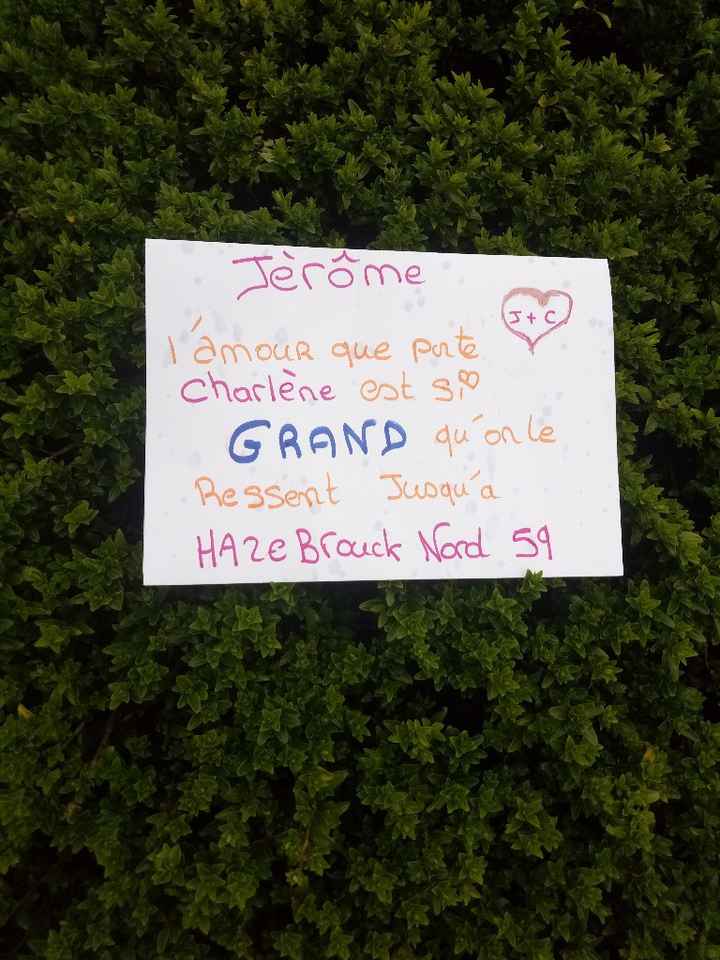 Jèrôme
J + C
l'amour que porte
Charlène est si
GRAND qu'on le
Ressent Jusqu'a
HAzeBrouck Nord 59